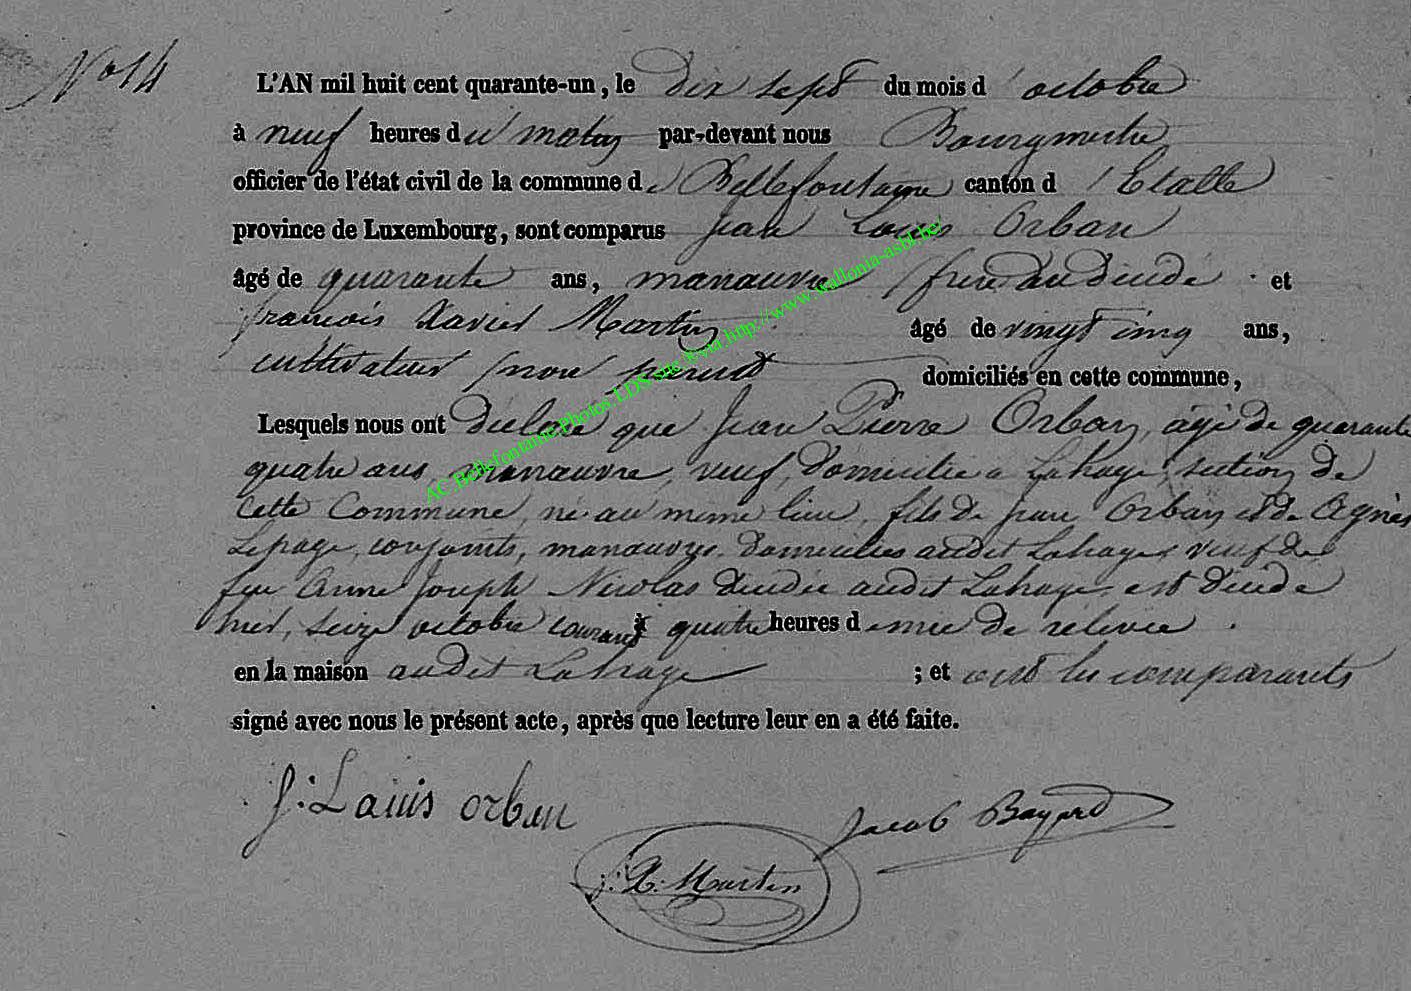 N° 14
L'AN mil huit cent quarante-un, le dix sept du mois d'octobre
à neuf heures du matin par-devant nous Bourgmestre
officier de l'état civil de la commune de Bellefontaine canton d'Etalle
province de Luxembourg, sont comparus Jean Louis Orban
âgé de quarante ans, manœuvre frère du décédé et
françois Xavier Martin âgé de vingt cinq ans,
cultivateur non parent domiciliés en cette commune,
Lesquels nous ont déclaré que Jean Pierre Orban, âgé de quarante
quatre ans, manœuvre, veuf, domicilié a Lahage section de
Cette Commune, né au même lieu, fils de Jean Orban et de Agnès
Lepage, conjoints, manœuvres domiciliés audit Lahage, veuf de
feu Anne Joseph Nicolas décédée audit Lahage, est décédé
hier, seize octobre courant à quatre heures demie de relevée.
en la maison audit Lahage ; et ont les comparants
signé avec nous le présent acte, après que lecture leur en a été faite.
J: Louis orban
Jacob Bayard
f: X: Martin
AC Bellefontaine Photos LDS via http://www.wallonia-asbl.be/